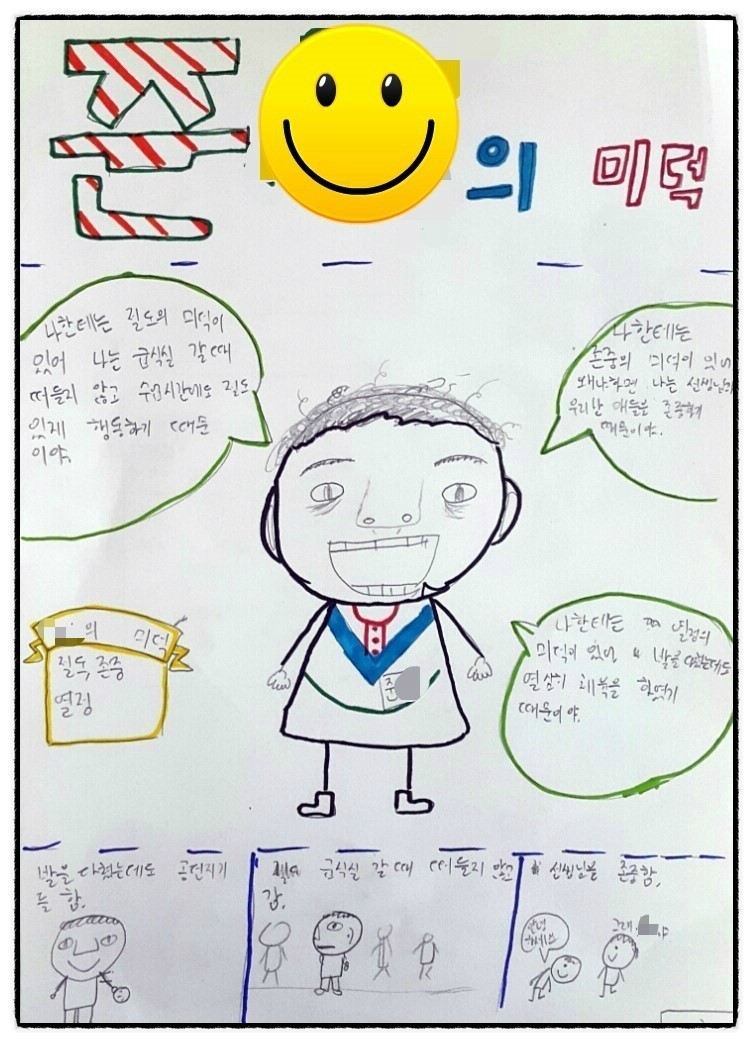 준 의 미덕
나한테는 질도의 미덕이
있어 나는 급식실 갈때
떠들지 않고 수업시간에도 질도
있게 행동하기 때문
이야.
나한테는
존중의 미덕이 있어
왜냐하면 나는 선생님과
우리반 애들은 존중하기
때문이야.
의 미덕
질두 존중
열정
나한테는 열정의
미덕이 있어 발을 다쳤는데도
열심히 회복을 하였기
때문이야.
준
발을 다쳤는데도 공던지기
를 함.
급식실 갈 때 떠들지 않고
감.
선생님을 존중함.
안녕
하세요
그래, 야